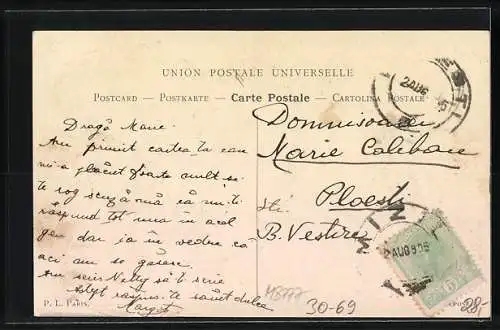 UNION POSTALE UNIVERSELLE
POSTCARD — POSTKARTE — Carte Postale — CARTOLINA POSTALE
Dragă Marie
Am primit cartea ta care
mi-a plăcut foarte mult te
rog scuză-mă că nu-ți
răspund tot una în acel
gen dar ia în vedere că
aci am se găsesc
Am scris Netty să-ți scrie
Aștept răspuns te sărut dulce
Margot
Domnișoarei
Marie Caliban
Ploești
Str.
B. Vestire
2 AUG
2 AUG 905
P. L. Paris.
30-69
28,-